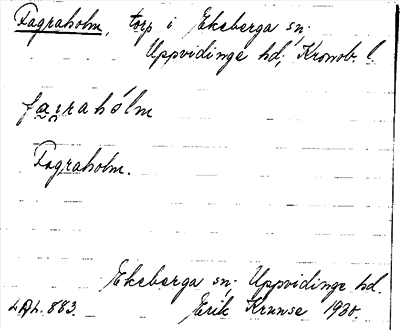 Fagraholm, torp i Ekeberga sn;
Uppvidinge hd; Kronob. l.
fa̤r̤rahólm
Fagraholm.
Ekeberga sn; Uppvidinge hd.
Erik Krunse 1930.
LAL. 883.